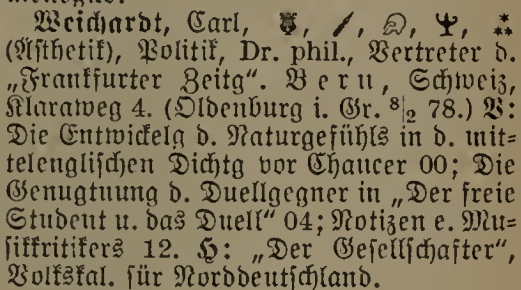 Weichardt, Carl,
(Ästhetik), Politik, Dr. phil., Vertreter d.
„Frankfurter Zeitg“. Bern, Schweiz,
Klaraweg 4. (Oldenburg i. Gr. 8|2 78.) V:
Die Entwickelg d. Naturgefühls in d. mit=
telenglischen Dichtg vor Chaucer 00; Die
Genugtuung d. Duellgegner in „Der freie
Student u. das Duell“ 04; Notizen e. Mu=
sikkritikers 12. H: „Der Gesellschafter“,
Volkskal. für Norddeutschland.